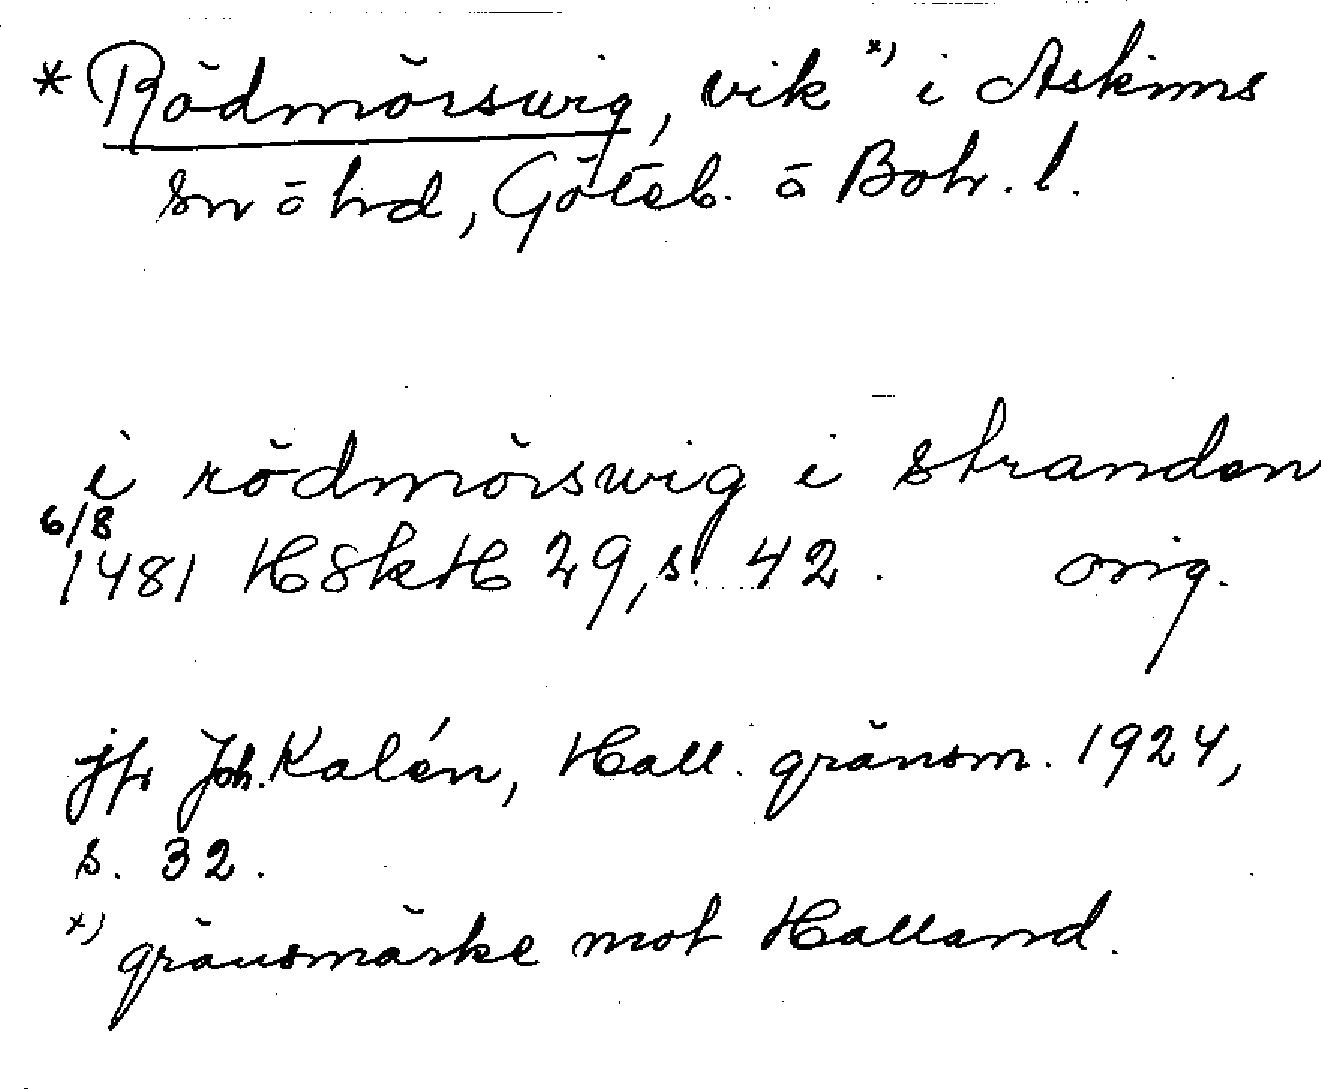 * Rödmörswig, vik x) i Askims
sn o hd, Göteb. o Boh. l.
i rödmörswig i stranden
6/8
1481 HSkH 29, s. 42. orig.
jfr Joh. Kalén, Hall. gränsm. 1924,
s. 32.
x) gränsmärke mot Halland.